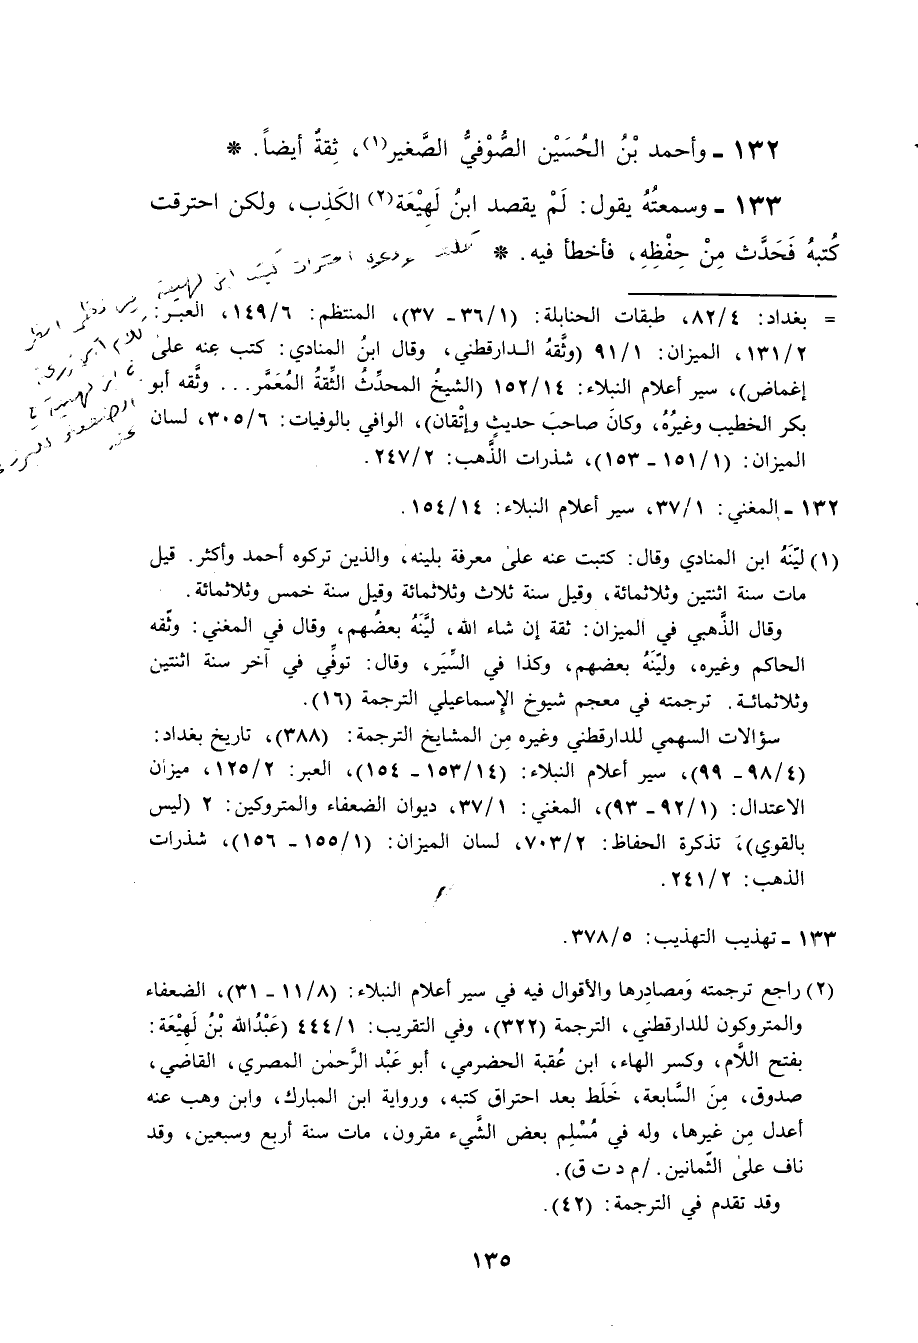 ١٣٢ ـ وأحمد بْنُ الحُسَيْن الصُّوْفيُّ الصَّغير(١)، ثِقةٌ أيضاً. *
١٣٣ ـ وسمعتُهُ يقول: لَمْ يقصد ابنُ لَهِيْعَة(٢) الكَذِب، ولكن احترقت
كُتبهُ فَحَدَّث مِنْ حِفْظِهِ، فأخطأ فيه. *
= بغداد: ٨٢/٤، طبقات الحنابلة: (٣٦/١ ـ ٣٧)، المنتظم: ١٤٩/٦، العبر:
١٣١/٢، الميزان: ٩١/١ (وثَّقهُ الدارقطني، وقال ابنُ المنادي: كتب عنه علىٰ
إغماض)، سير أعلام النبلاء: ١٥٢/١٤ (الشيخُ المحدِّثُ الثِّقةُ المُعَمَّر... وثَّقه أبو
بكر الخطيب وغيرُهُ، وكانَ صاحبَ حديثٍ وإتْقان)، الوافي بالوفيات: ٣٠٥/٦، لسان
الميزان: (١٥١/١ ـ ١٥٣)، شذرات الذَّهب: ٢٤٧/٢.
١٣٢ ـ المغني: ٣٧/١، سير أعلام النبلاء: ١٥٤/١٤.
(١) ليّنَهُ ابن المنادي وقال: كتبت عنه علىٰ معرفة بلينه، والذين تركوه أحمد وأكثر. قيل
مات سنة اثنتين وثلاثمائة، وقيل سنة ثلاث وثلاثمائة وقيل سنة خمس وثلاثمائة.
وقال الذَّهبي في الميزان: ثقة إن شاء الله، ليَّنَهُ بعضُهم، وقال في المغني: وثّقه
الحاكم وغيره، وليّنَهُ بعضهم، وكذا في السِّيَر، وقال: توفِّي في آخر سنة اثنتين
وثلاثمائة. ترجمته في معجم شيوخ الإسماعيلي الترجمة (١٦).
سؤالات السهمي للدارقطني وغيره مِن المشايخ الترجمة: (٣٨٨)، تاريخ بغداد:
(٩٨/٤ ـ ٩٩)، سير أعلام النبلاء: (١٥٣/١٤ ـ ١٥٤)، العبر: ١٢٥/٢، ميزان
الاعتدال: (٩٢/١ ـ ٩٣)، المغني: ٣٧/١، ديوان الضعفاء والمتروكين: ٢ (ليس
بالقوي)، تذكرة الحفاظ: ٧٠٣/٢، لسان الميزان: (١٥٥/١ ـ ١٥٦)، شذرات
الذهب: ٢٤١/٢.
١٣٣ ـ تهذيب التهذيب: ٣٧٨/٥.
(٢) راجع ترجمته وَمصادِرها والأقوال فيه في سير أعلام النبلاء: (١١/٨ ـ ٣١)، الضعفاء
والمتروكون للدارقطني، الترجمة (٣٢٢)، وفي التقريب: ٤٤٤/١ (عَبْدُالله بْنُ لَهِيْعَة:
بفتح اللَّام، وكسر الهاء، ابن عُقبة الحضرمي، أبو عَبْد الرَّحمٰن المصري، القاضي،
صدوق، مِنَ السَّابعة، خَلَط بعد احتراق كتبه، ورواية ابن المبارك، وابن وهب عنه
أعدل مِن غيرها، وله في مُسْلِم بعض الشَّيء مقرون، مات سنة أربع وسبعين، وقد
ناف علىٰ الثّمانين. /م د ت ق).
وقد تقدم في الترجمة: (٤٢).
١٣٥